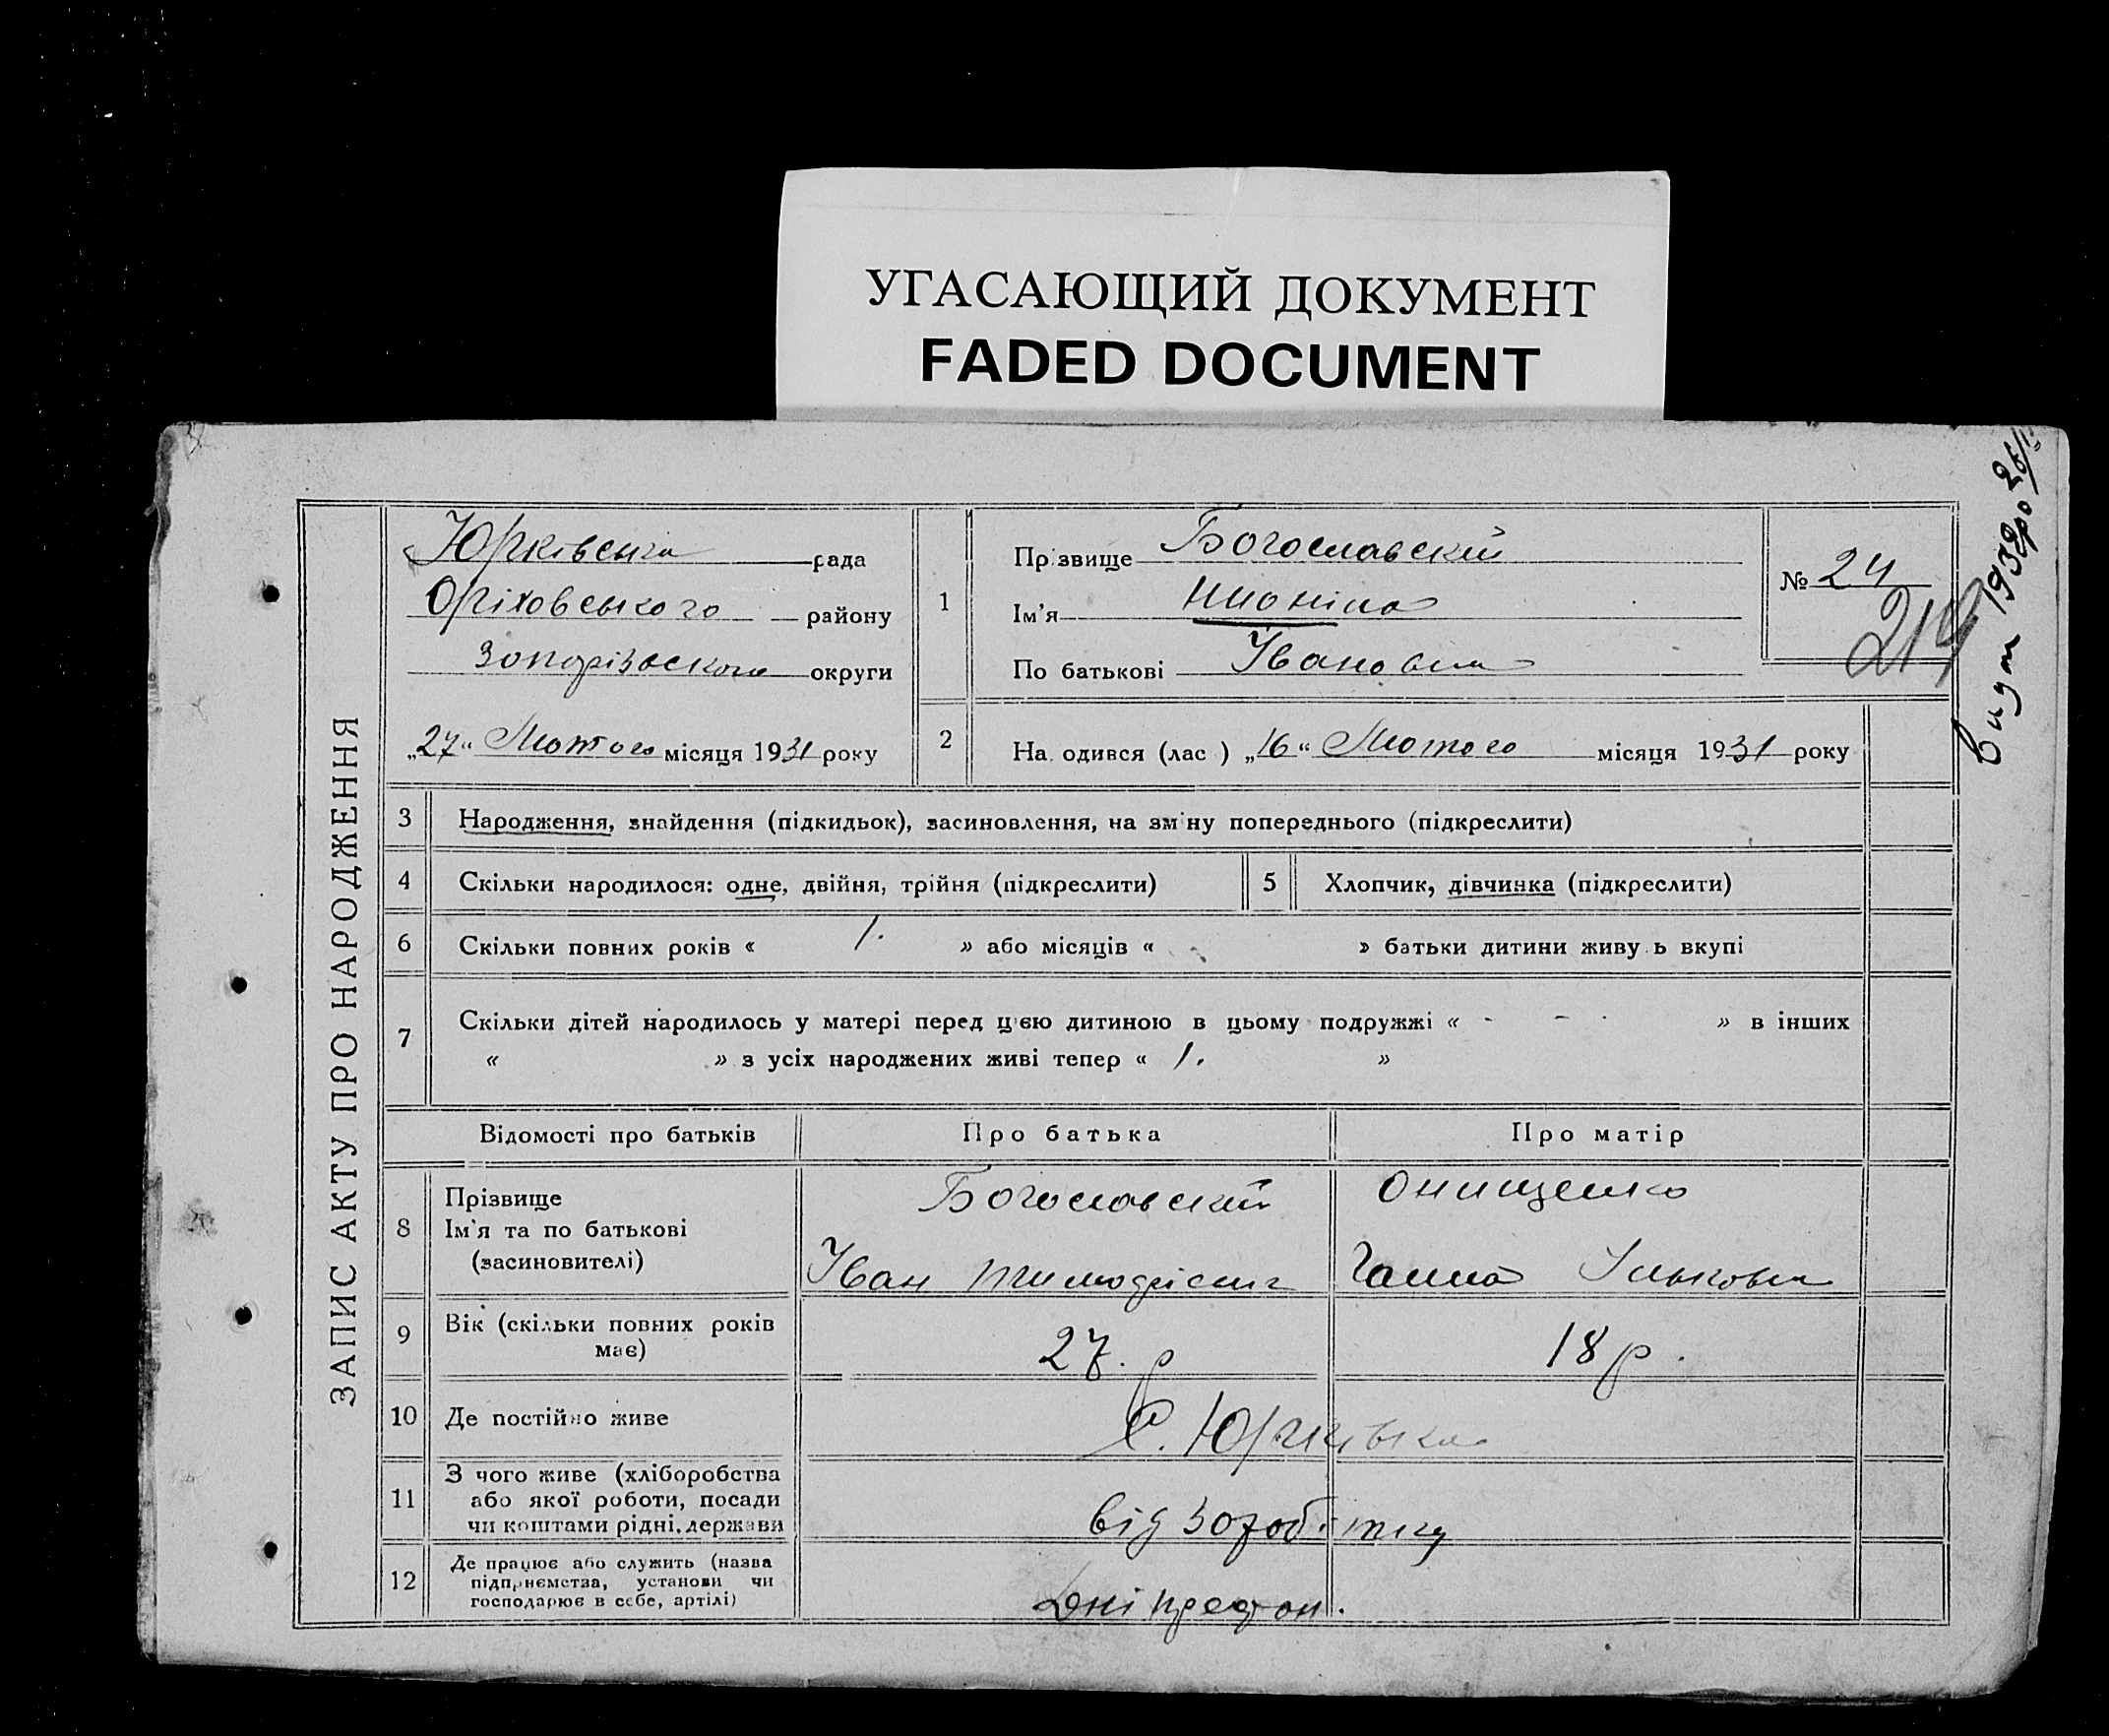 УГАСАЮЩИЙ ДОКУМЕНТ
FADED DOCUMENT
ЗАПИС АКТУ ПРО НАРОДЖЕННЯ
Юрківська рада
Оріховського району
Запорізького округи
„27“ Лютого місяця 1931 року
1
Прізвище Богославский
Ім'я
По батькові Івановна
№ 24
219
1932 р 26/
2
На одився (лас ) „16“ Лютого місяця 1931 року
3 Народження, знайдення (підкидьок), засиновлення, на зміну попереднього (підкреслити)
4 Скільки народилося: одне, двійня, трійня (підкреслити)
5 Хлопчик, дівчинка (підкреслити)
6 Скільки повних років « 1. » або місяців « - » батьки дитини живу ь вкупі
7 Скільки дітей народилось у матері перед цією дитиною в цьому подружжі « - - - » в інших
« » з усіх народжених живі тепер « 1. »
Відомості про батьків Про батька Про матір
8 Прізвище
Ім'я та по батькові
(засиновителі)
Богославский
Іван
Онищенко
Ганна Ільковна
9 Вік (скільки повних років
має)
27. р
18 р.
10 Де постійно живе
С. Юрківка
11 З чого живе (хліборобства
або якої роботи, посади
чи коштами рідні, держави
від заробітку
12 Де працює або служить (назва
підприємства, установи чи
господарює в себе, артілі)